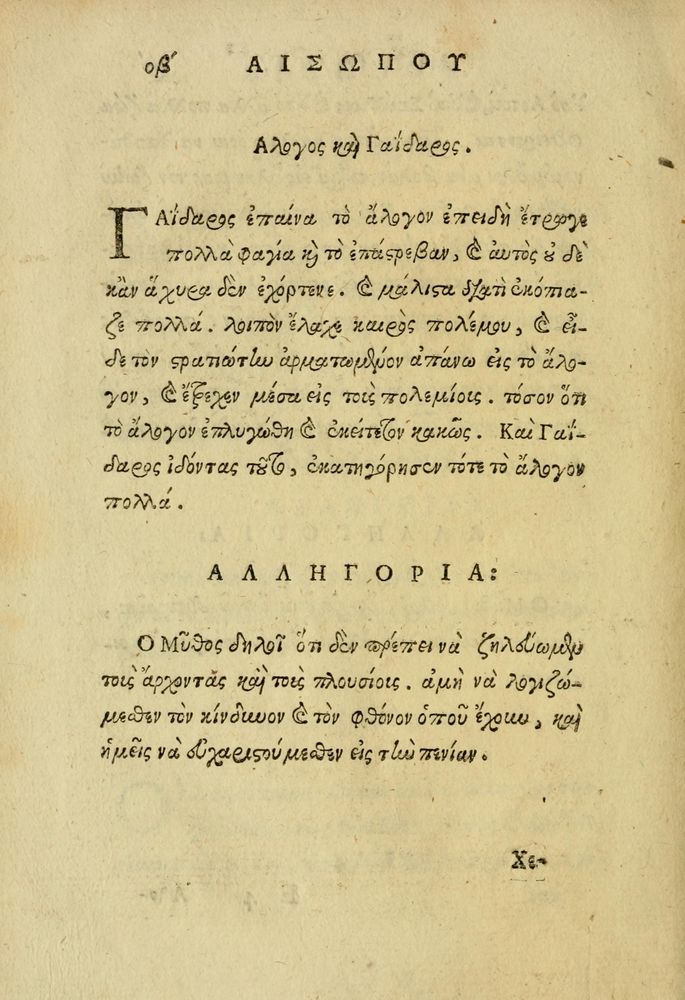 οβʹ ΑΙΣΩΠΟΥ
Αλογος καὶ Γαΐδαρος.
ΓΑΐδαρος ἐπαίνα τὸ ἄλογον ἐπειδὴ ἔτρωγε
πολλὰ φαγία κὴ τὸ ἐπάστρεβαν, καὶ αὐτὸς οὐδὲ
κἂν ἄχυρα δὲν ἐχόρτενε. καὶ μάλιστα διατὴ ἐκόπια-
ζε πολλά. λοιπὸν ἔλαχε καιρὸς πολέμου, καὶ εἶ-
δε τὸν στρατιώτην ἀρματωμένον ἀπάνω εἰς τὸ ἄλο-
γον, καὶ ἔτρεχεν μέσα εἰς τοὶς πολεμίοις. τόσον ὅτι
τὸ ἄλογον ἐπλυγώθη καὶ ἐκείτετον κακῶς. Καὶ Γαΐ-
δαρος ἰδόντας τοῦτο, ἐκατηγόρησεν τότε τὸ ἄλογον
πολλά.
ΑΛΛΗΓΟΡΙΑ:
Ο Μῦθος δηλοῖ ὅτι δὲν πρέπει νὰ ζηλεύωμεν
τοὶς ἄρχοντας καὶ τοὶς πλουσίοις. ἀμὴ νὰ λογιζώ-
μεθεν τὸν κίνδυνον καὶ τὸν φθόνον ὁποῦ ἔχουν, καὶ
ἡμεῖς νὰ εὐχαριστούμεθεν εἰς τὴν πενίαν.
Χε-